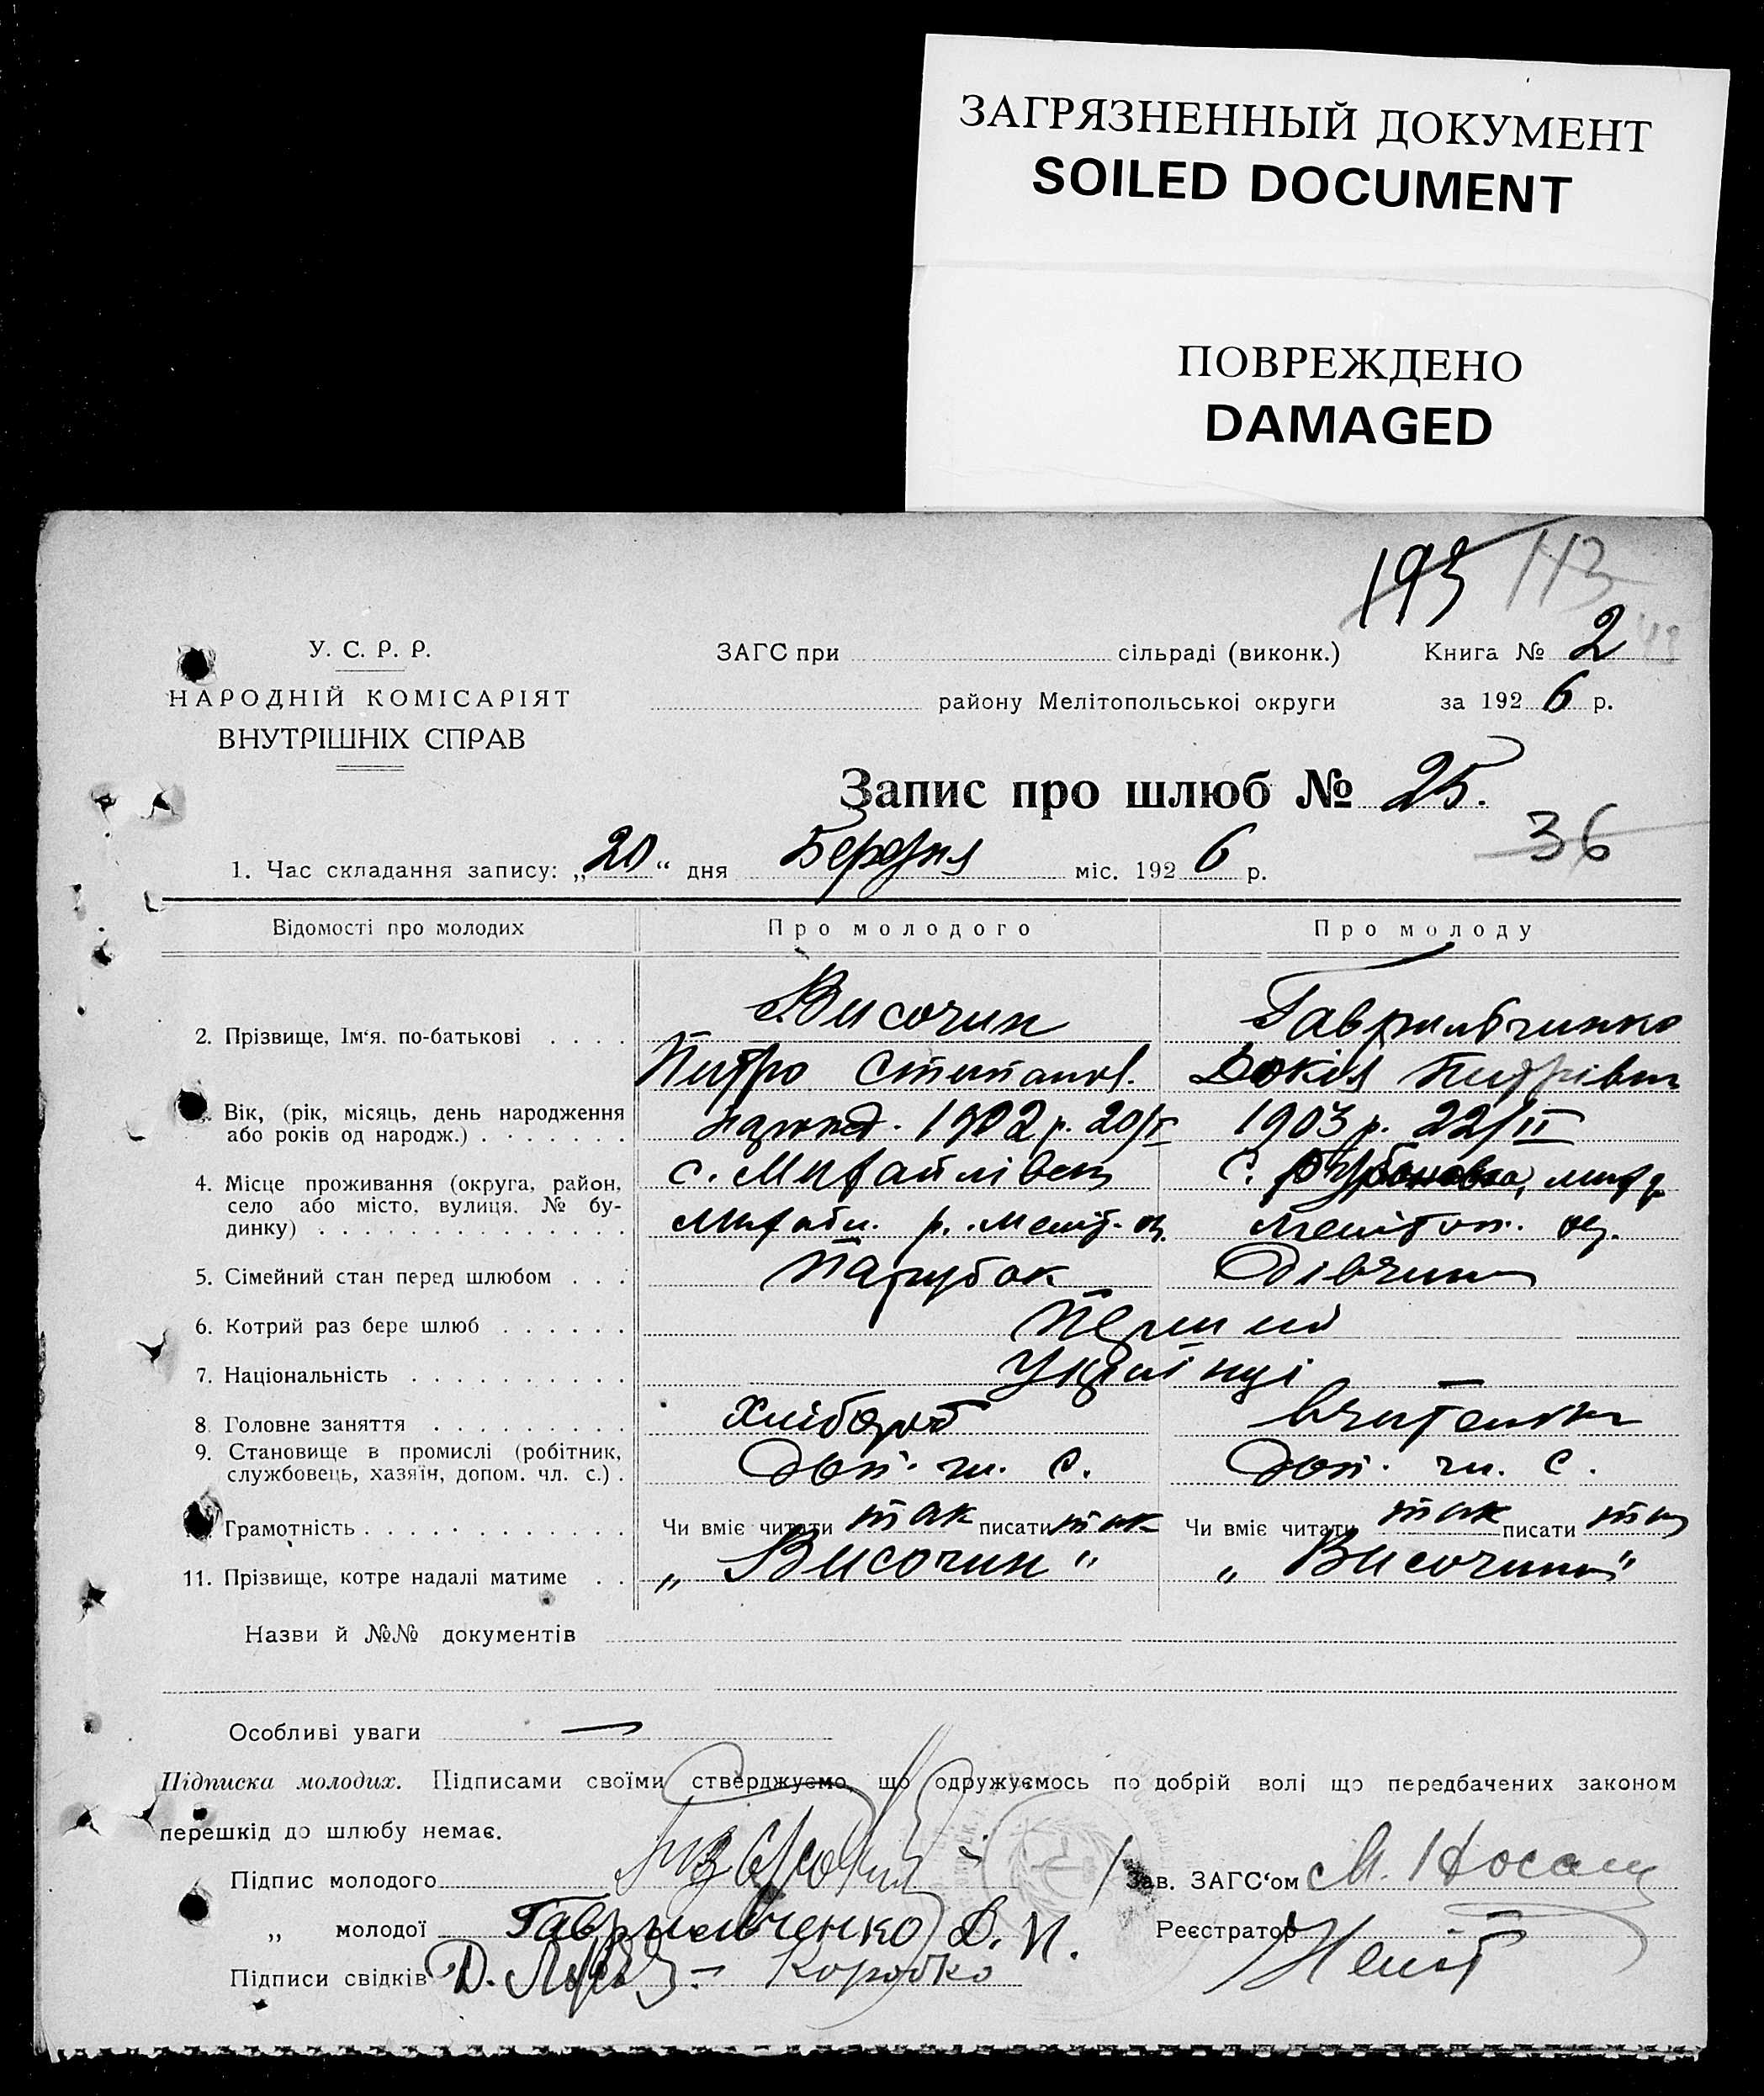 ЗАГРЯЗНЕННЫЙ ДОКУМЕНТ
SOILED DOCUMENT
ПОВРЕЖДЕНО
DAMAGED
193 113
У. С. Р. Р. ЗАГС при сільраді (виконк.) Книга № 2
НАРОДНІЙ КОМІСАРІЯТ району Мелітопольської округи за 192 6 р.
ВНУТРІШНІХ СПРАВ
Запис про шлюб № 25.
36
1. Час складання запису: „20“ дня Березня міс. 192 6 р.
Відомості про молодих Про молодого Про молоду
Височин Гаврильченко
2. Прізвище, Ім‘я. по-батькові
Петро Степанов. Докія Петрівна
Вік, (рік, місяць, день народження
або років од народж.) народ. 1902 р. 20/ 1903 р. 22/II
4. Місце проживання (округа, район, с. Михайлівка с.
село або місто, вулиця, № бу-
динку) Михайл. р. Меліт. ок. Мелітоп. ок.
5. Сімейний стан перед шлюбом Парубок Дівчина
6. Котрий раз бере шлюб Перший
7. Національність Українці —
8. Головне заняття Хлібороб Вчителька
9. Становище в промислі (робітник,
службовець, хазяїн, допом. чл. с.) Доп. чл. с. Доп. чл. с.
Грамотність Чи вміє читати так писати так Чи вміє читати так писати так
11. Прізвище, котре надалі матиме „Височин“ „Височина“
Назви й №№ документів
Особливі уваги —
Підписка молодих. Підписами своїми стверджуємо, що одружуємось по добрій волі що передбачених законом
перешкід до шлюбу немає.
Підпис молодого Зав. ЗАГС‘ом М. Носац
„ молодої Гаврильченко Д. П. Реєстратор
Підписи свідків Д. Коробко